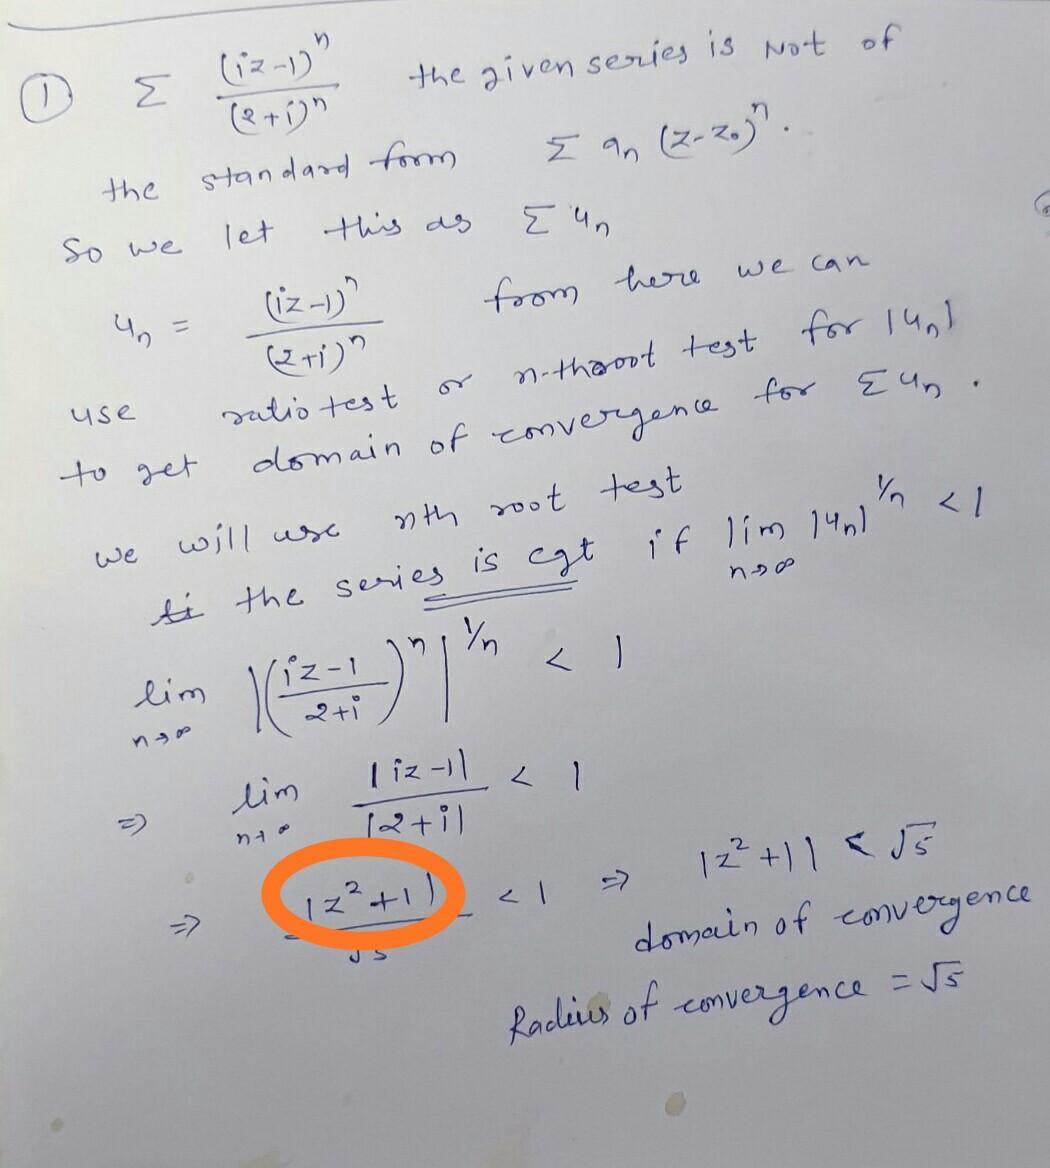 ① Σ (iz-1)ⁿ / (2+i)ⁿ the given series is Not of
the standard form Σ aₙ (z-z₀)ⁿ.
So we let this as Σ uₙ
uₙ = (iz-1)ⁿ / (2+i)ⁿ from here we can
use ratio test or n-th root test for |uₙ|
to get domain of convergence for Σ uₙ.
we will use nth root test
the series is cgt if lim n→∞ |uₙ|^1/n < 1
lim n→∞ |((iz-1)/(2+i))ⁿ|^1/n < 1
⇒ lim n→∞ |iz-1| / |2+i| < 1
⇒ |z²+1| / √5 < 1 ⇒ |z²+1| < √5
domain of convergence
Radius of convergence = √5